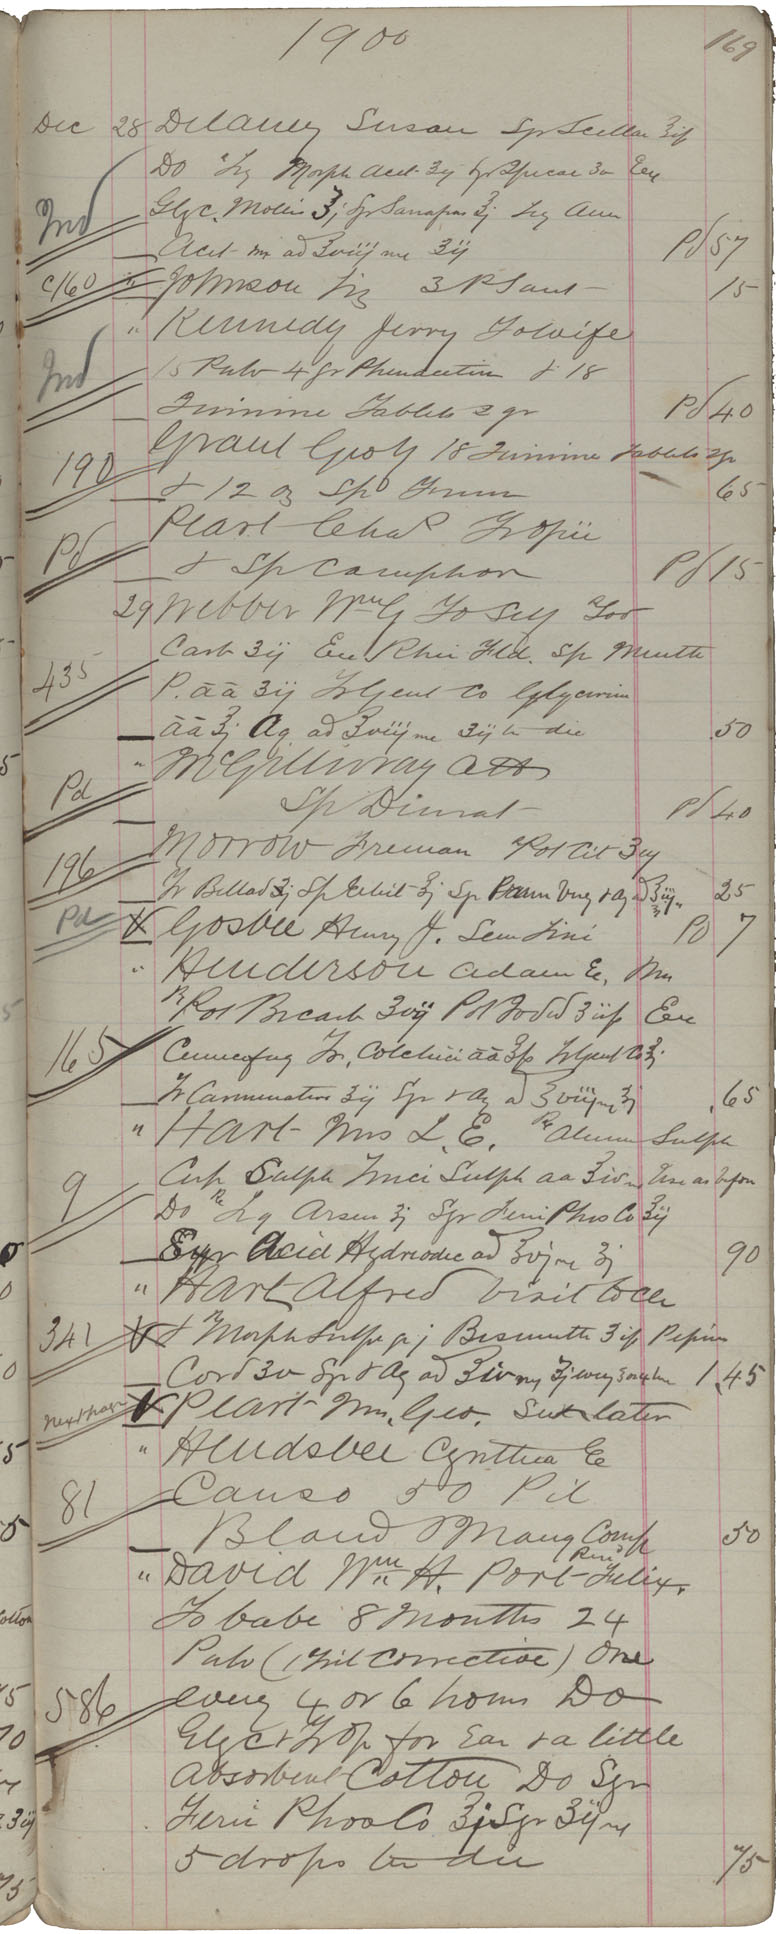 1900 169
Dec 28 Delaney Susan Syr Scillae ʒiß
Do Liq Morph Acet ʒij Syr Ipecac ʒv
Ind Glyc. Mollis ʒj Syr Sarsapar ʒj Liq Amm
Acet ad ℥viij ʒij Pd 57
C160 " Johnson Liz 15
" Kennedy Jerry To wife
Ind 15 Pulv 4 gr Phenacetin & 18
Quinine Tablets 2 gr Pd 40
190 Grant Geo 18 Quinine Tablets 2gr
& 12 oz Sp Frum 65
Peart Chas Tr Opii
Pd & Sp Camphor Pd 15
29 Webber Wm G To Self
Carb ʒij Rhei Fld. Sp Menth
435 P. āā ʒij Tr Gent Co Glycerin
āā ℥j Aq ad ℥viij ʒij ter die 50
" McGillivray
Pd Sp Pd 40
Morrow Freman Pot Cit ʒiij
196 Tr Bellad ʒj ʒj Syr Prun Virg & Aq ad 25
Pd Gosbee Henry J. Sem Lini Pd 7
" Henderson Adam E, Mrs
℞ Pot Bicarb ʒvij Pot Iodid ʒiiß
165 Cimicifug Tr, Colchici āā Tr Gent Co ℥j
Tr Carminativ ʒij Syr & Aq ad ℥viij ʒj .65
" Hart Mrs L. E. ℞ Alumin Sulph
9 Cup Sulph Zinci Sulph aa ʒiv Use as before
Do ℞ Liq Arsen ʒj Syr Ferri Phos Co ℥ij
Syr Acid Hydriodic ad ℥vj ʒj 90
" Hart Alfred Visit
341 & ℞ Morph Sulph gr j Bismuth ʒiß Pepsin
Cord ʒv Syr & Aq ad ℥iv ʒj every 3 or 4 hrs 1.45
Next page Peart Mrs. Geo. See later
" Hendsbee Cynthia E
81 Canso 50 Pil
Blaud & Mang Comp 50
" David Wm H. Port Felix,
To babe 8 months 24
Pulv (1 Fil Corrective) One
586 every 4 or 6 hours Do
Glyc & Tr Op for Ear & a little
Absorbent Cotton Do Syr
Ferri Phos Co ℥j Syr ʒij
5 drops ter die 75